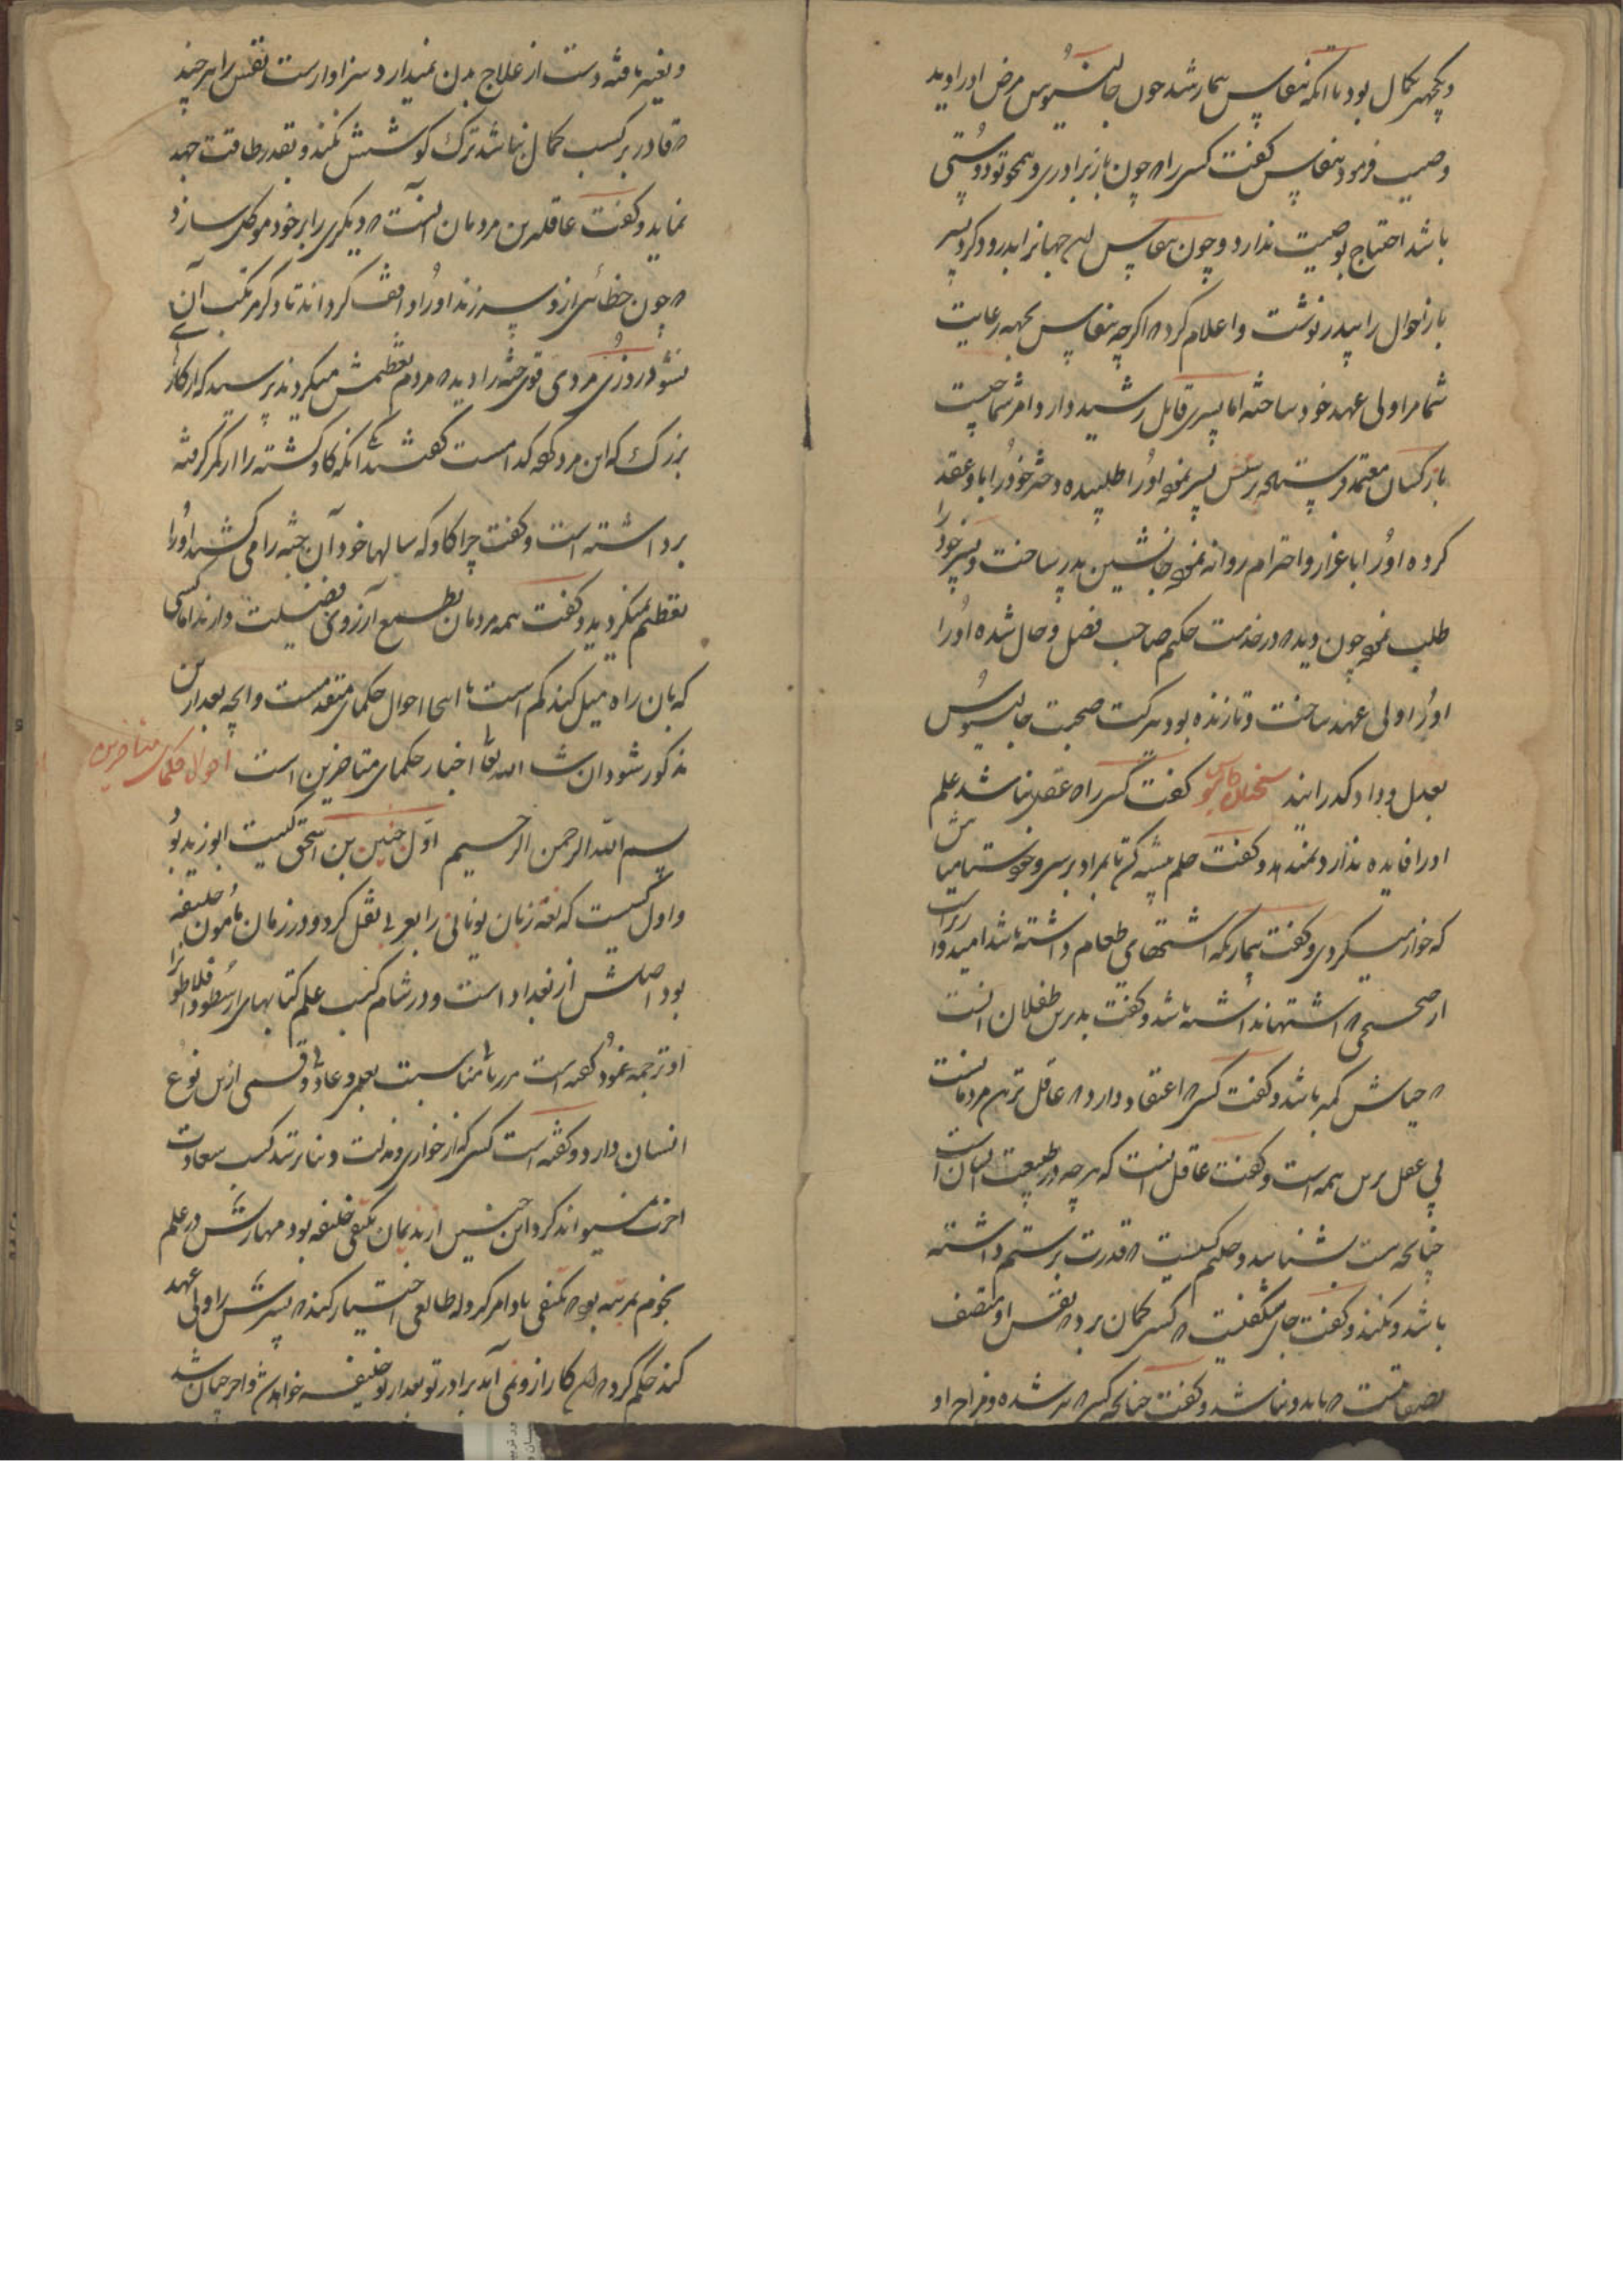 و بجهر بکمال بود تا آنکه نبغاپس بیمار شد چون جالینوس مرض او را دید
وصیت فرمود بنغاپس گفت کسی را که چون باز برادری و همچو تو دوستی
باشد احتیاج بوصیت ندارد و چون بنغاپس این جهانرا بدرود کرد پسر
باز احوال را بپدر نوشت و اعلام کرد که اگر چه بنغاپس بجهة رعایت
شما مرا ولی عهد خود ساخته اما پسری قابل رشید دارد امر شما چیست
باز کسان معتمد فرستاده پسر نموده او را طلبیده دختر خود را با او عقد
کرده او را باعزاز و احترام روانه نموده جانشین پدر ساخت و پسر خود را
طلب نموده چون دید که در خدمت حکیم صاحب فضل و حال شده او را
او را ولی عهد ساخت و تا زنده بود ببرکت صحبت جالینوس
بعدل و داد گذرانید سخنان جالینوس گفت کسی را که عقل نباشد علم
او را فایده ندارد و گفت حلم پیشه کن تا بمراد برسی و
که خوار نکردی و گفت بیماری که اشتهای طعام داشته باشد امیدوارتر است
از صحیحی که اشتها نداشته باشد و گفت بدترین طفلان آنست
که حیاش کمتر باشد و گفت کسی که اعتقاد دارد که عاقل ترین مردمانست
بی عقل ترین همه است و گفت عاقل آنست که هر چه در طبیعت انسان است
چنانچه هست شناسد و حلیم کسیست که قدرت بر ستم داشته
باشد و نکند و گفت جای شگفتست که کسی گمان برد که نفس او متصف
بصفاتست که باید و نباشد و گفت چنانچه کسی که پیر شده و مزاج او
و تغییر یافته دست از علاج بدن نمیدارد سزاوار است نفس را هر چند
که قادر بر کسب کمال نباشد ترک کوشش نکند و بقدر طاقت جهد
نماید و گفت عاقلترین مردمان آنست که دیگری را بر خود موکل سازد
که چون خطائی از وی سر زند او را واقف گرداند تا دگر مرتکب آن
نشود روزی مردی قوی جثه را دید که مردم تعظیمش میکردند پرسید که از کارهای
بزرگ که این مرد کرده کدام است گفتند آنکه گاو کشته را از کمر گرفته
برداشته است و گفت چرا گاو که سالها خود آن جثه را می کشید او را
تعظیم نمیکردید و گفت همه مردمان بطبع آرزوی فضیلت دارند اما کسی
که بآن راه میل کند کم است تا اینجا احوال حکمای متقدمست و آنچه بعد از این
مذکور شود ان شاء الله تعالی اخبار حکمای متاخرین است احوال حکمای متاخرین
بسم الله الرحمن الرحیم اول حنین بن اسحق کنیت ابو زید بود
و اول کسیست که لغة زبان یونانی را بعربی نقل کرد و در زمان مامون خلیفه
بود اصلش از بغداد است و در شام کسب علم کتابهای ارسطو و افلاطون را
او ترجمه نمود گفته است مناسبت بعلم و عادتی و قسمی ازین نوع
انسان دارد و گفته است کسی که از خواری و مذلت دنیا نترسد کسب سعادت
اخرت میتواند کرد این حنین از ندیمان مکتفی خلیفه بود مهارتش در علم
نجوم بمرتبه بود که مکتفی باو امر کرد که طالعی اختیار کند که پسرش را ولی عهد
کند حکم کرد که این کار از و نمی آید برادر تو بعد از تو خلیفه خواهد شد و آخر چنان شد